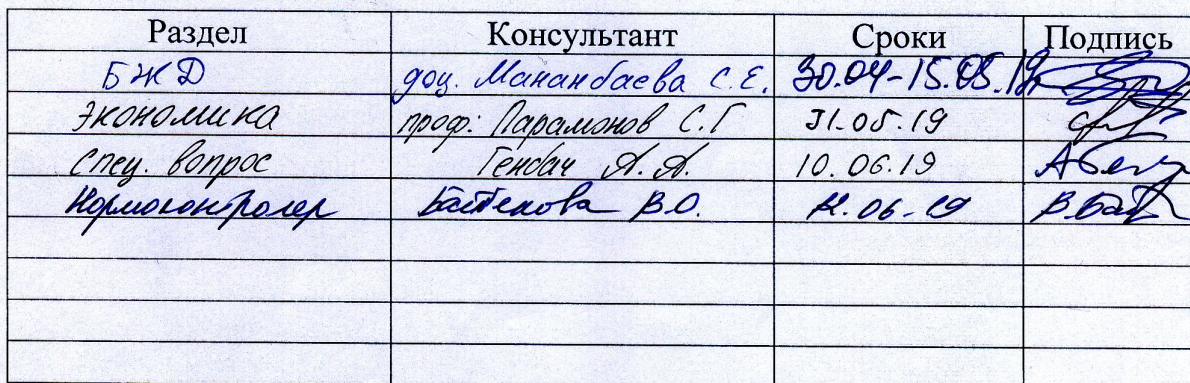 Раздел Консультант Сроки Подпись
БЖД доц. Мананбаева С.Е. 30.04-15.05.19
Экономика проф. Парамонов С.Г 31.05.19
Спец. вопрос Генбач А.А. 10.06.19
Нормоконтролер Байбекова В.О. .06-19